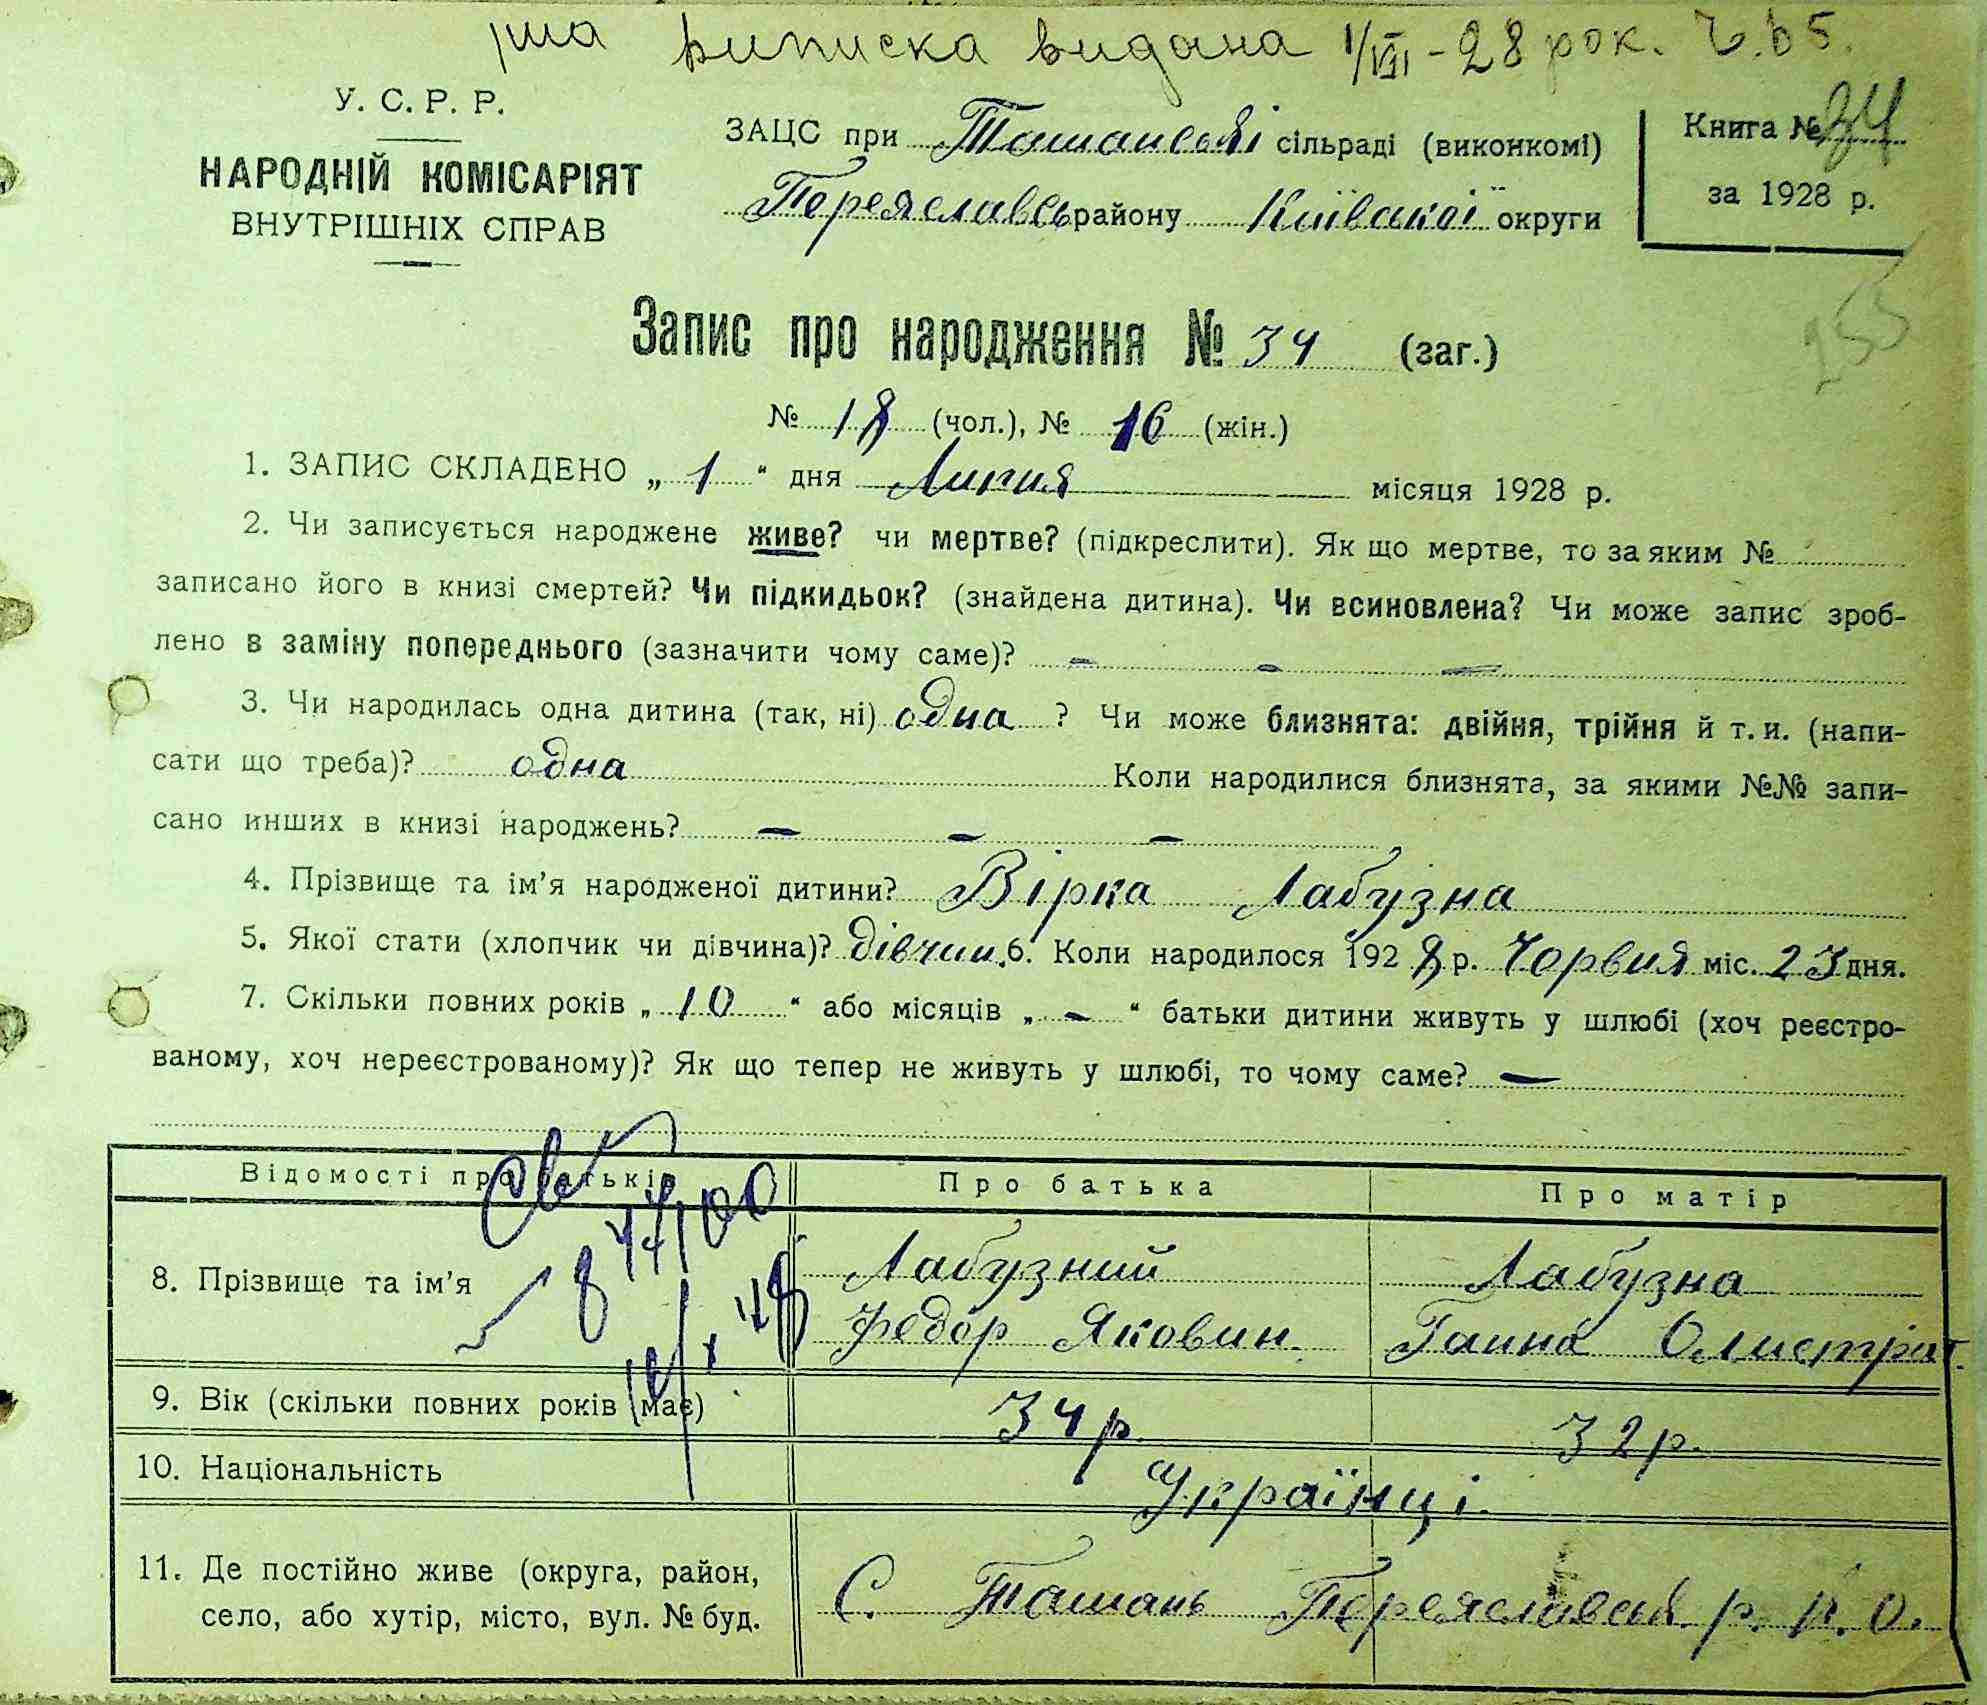 виписка видана 1/VII - 28 рок. Ч. 65.
У. С. Р. Р.
НАРОДНІЙ КОМІСАРІЯТ
ВНУТРІШНІХ СПРАВ
ЗАЦС при Ташанські сільраді (виконкомі)
Переяславсь району Київської округи
Книга № 34
за 1928 р.
255
Запис про народження № 34 (заг.)
№ 18 (чол.), № 16 (жін.)
1. ЗАПИС СКЛАДЕНО „ 1 “ дня Липня місяця 1928 р.
2. Чи записується народжене живе? чи мертве? (підкреслити). Як що мертве, то за яким №
записано його в книзі смертей? Чи підкидьок? (знайдена дитина). Чи всиновлена? Чи може запис зроб-
лено в заміну попереднього (зазначити чому саме)? – – –
3. Чи народилась одна дитина (так, ні) одна ? Чи може близнята: двійня, трійня й т. и. (напи-
сати що треба)? одна Коли народилися близнята, за якими №№ запи-
сано инших в книзі народжень? – – –
4. Прізвище та ім’я народженої дитини? Вірка Лабузна
5. Якої стати (хлопчик чи дівчина)? дівчин. 6. Коли народилося 1928 р. Чорвня міс. 23 дня.
7. Скільки повних років „ 10 “ або місяців „ – “ батьки дитини живуть у шлюбі (хоч реєстро-
ваному, хоч нереєстрованому)? Як що тепер не живуть у шлюбі, то чому саме? –
Відомості про батьків Про батька Про матір
8. Прізвище та ім’я Лабузний Лабузна
Федор Яковин. Ганна Олистрат.
9. Вік (скільки повних років має) 34 р. 32 р.
10. Національність Українці.
11. Де постійно живе (округа, район,
село, або хутір, місто, вул. № буд. С. Ташань Переяславськ. р. К. О.